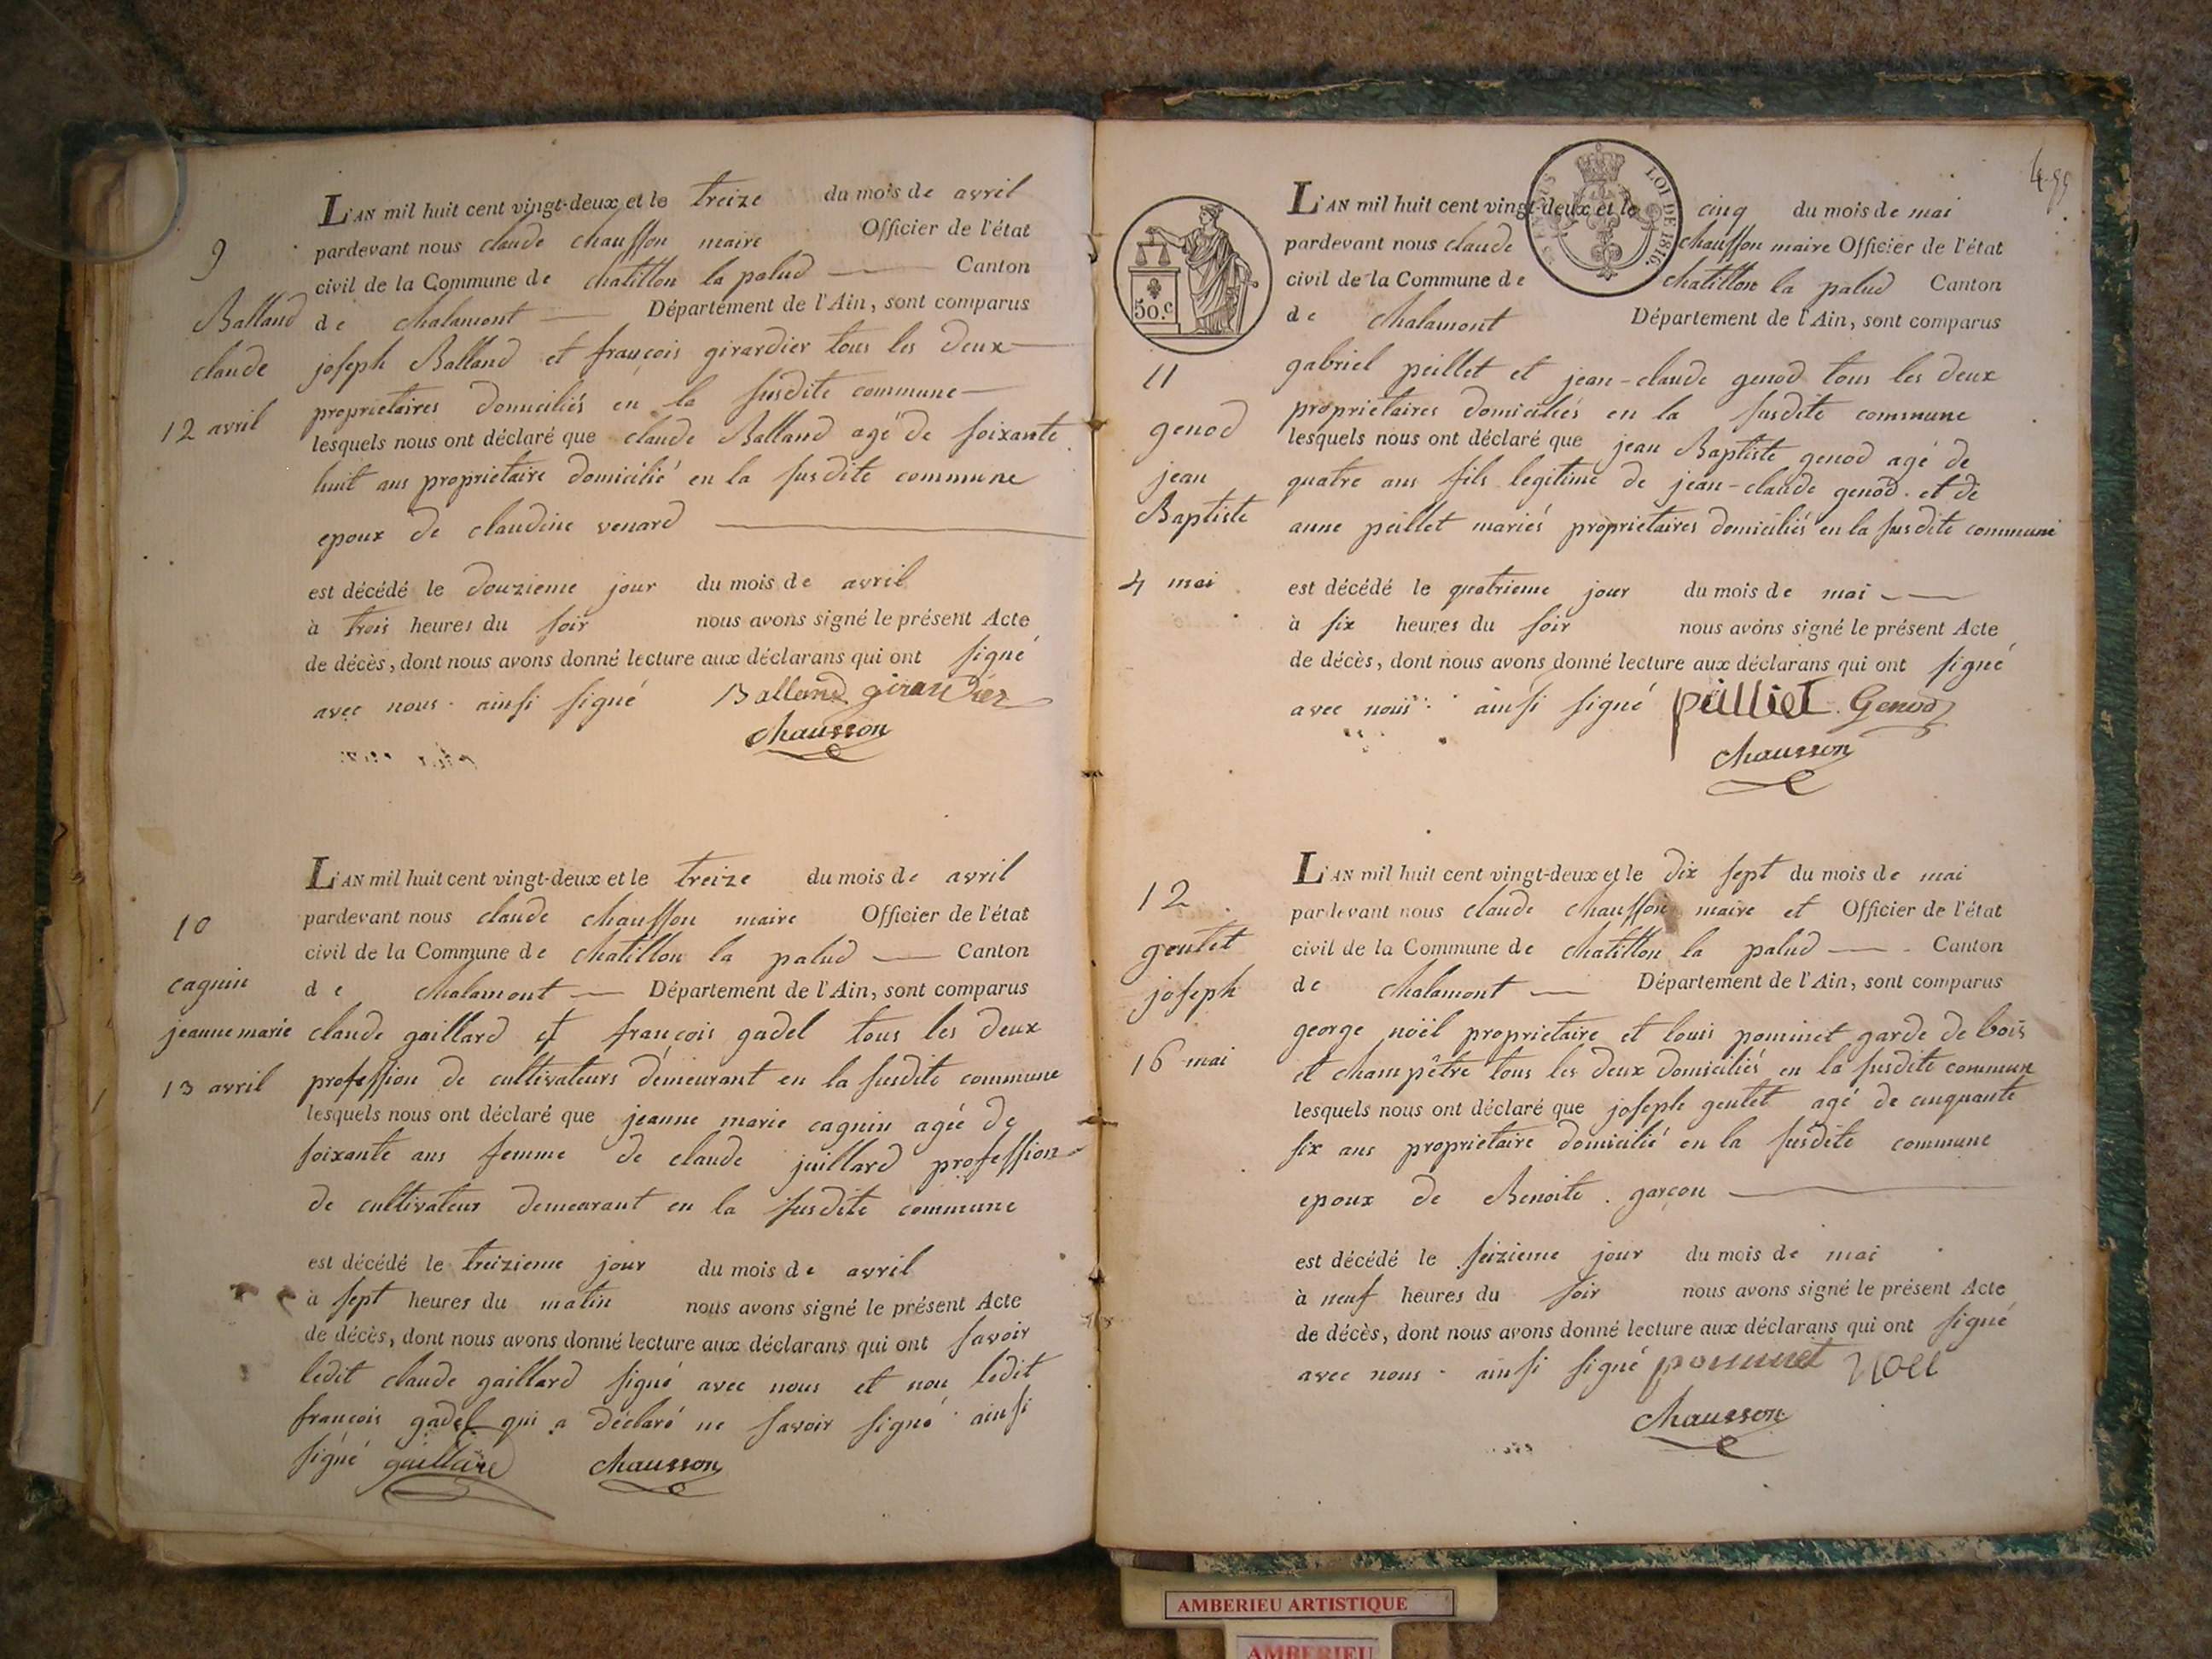 9
Balland
claude
12 avril
L'AN mil huit cent vingt-deux et le treize du mois de avril
pardevant nous claude chausson maire Officier de l'état
civil de la Commune de chatillon la palud Canton
de chalamont Département de l'Ain, sont comparus
joseph Balland et françois girardier tous les deux
proprietaires domiciliés en la susdite commune
lesquels nous ont déclaré que claude Balland agé de soixante
huit ans proprietaire domicilié en la susdite commune
epoux de claudine venard
est décédé le douzieme jour du mois de avril
à trois heures du soir nous avons signé le présent Acte
de décès, dont nous avons donné lecture aux déclarans qui ont signé
avec nous. ainsi signé Balland girardier
chausson
10
cagnin
jeanne marie
13 avril
L'AN mil huit cent vingt-deux et le treize du mois de avril
pardevant nous claude chausson maire Officier de l'état
civil de la Commune de chatillon la palud Canton
de chalamont Département de l'Ain, sont comparus
claude gaillard et françois gadel tous les deux
profession de cultivateurs demeurant en la susdite commune
lesquels nous ont déclaré que jeanne marie cagnin agée de
soixante ans femme de claude juillard profession
de cultivateur demeurant en la susdite commune
est décédé le treizieme jour du mois de avril
à sept heures du matin nous avons signé le présent Acte
de décès, dont nous avons donné lecture aux déclarans qui ont savoir
ledit claude gaillard signé avec nous et non ledit
françois gadel qui a déclaré ne savoir signé. ainsi
signé gaillard chausson
LOI DE 1816.
50.c
11
genod
jean
Baptiste
4 mai
L'AN mil huit cent vingt-deux et le cinq du mois de mai
pardevant nous claude chausson maire Officier de l'état
civil de la Commune de chatillon la palud Canton
de chalamont Département de l'Ain, sont comparus
gabriel peillet et jean-claude genod tous les deux
proprietaires domiciliés en la susdite commune
lesquels nous ont déclaré que jean Baptiste genod agé de
quatre ans fils legitime de jean-claude genod. et de
anne peillet mariés proprietaires domiciliés en la susdite commune
est décédé le quatrieme jour du mois de mai
à six heures du soir nous avons signé le présent Acte
de décès, dont nous avons donné lecture aux déclarans qui ont signé
avec nous. ainsi signé peilliet. Genod
chausson
12
geulet
joseph
16 mai
L'AN mil huit cent vingt-deux et le dix sept du mois de mai
pardevant nous claude chausson maire et Officier de l'état
civil de la Commune de chatillon la palud Canton
de chalamont Département de l'Ain, sont comparus
george noël proprietaire et louis pominet garde de bois
et champêtre tous les deux domiciliés en la susdite commune
lesquels nous ont déclaré que joseph geulet agé de cinquante
six ans proprietaire domicilié en la susdite commune
epoux de Benoite. garçon
est décédé le seizieme jour du mois de mai
à neuf heures du soir nous avons signé le présent Acte
de décès, dont nous avons donné lecture aux déclarans qui ont signé
avec nous. ainsi signé pominet noel
chausson
AMBERIEU ARTISTIQUE
AMBERIEU